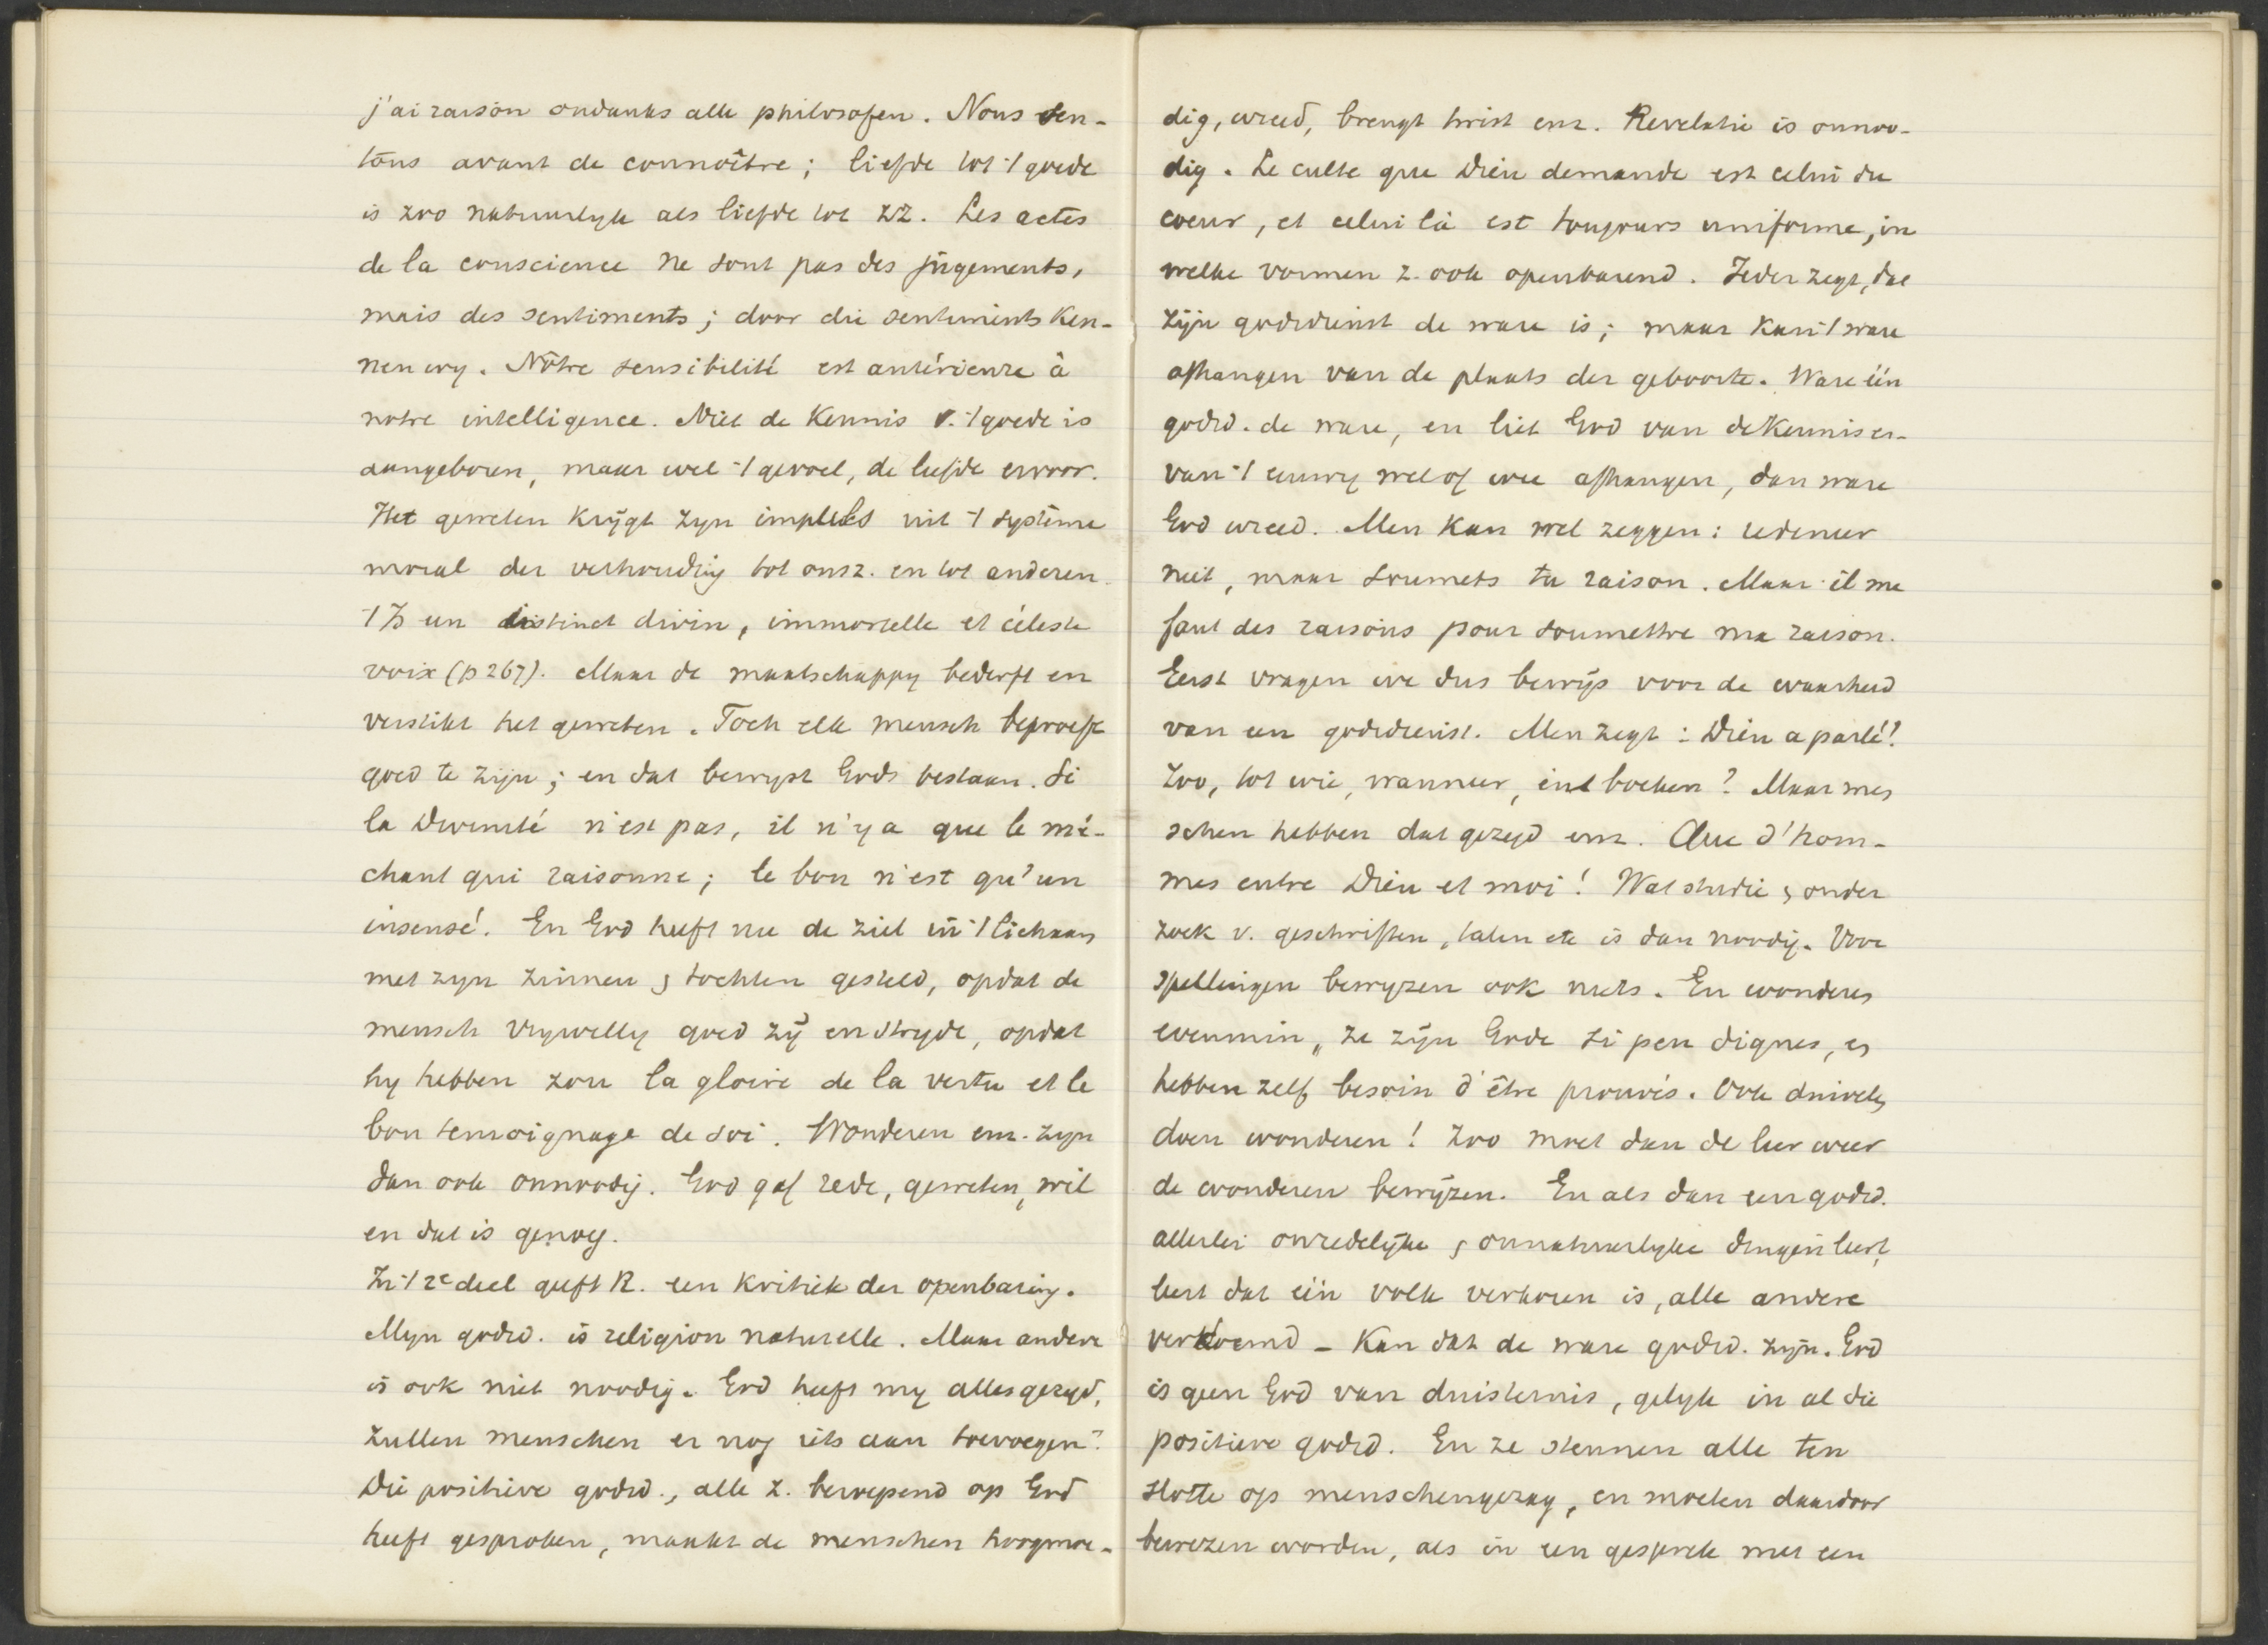 j'ai raison ondanks alle philosofen. Nous sen-
tons avant de connoître; liefde tot 't goede
is zoo natuurlyk als liefde tot zz. Les actes
de la conscience ne sont pas des jugements,
mais des sentiments; door die sentiments ken-
nen wy. Nôtre sensibilité est antérieure à
notre intelligence. Niet de kennis v. 't goede is
aangeboren, maar wel 't gevoel, de liefde ervoor.
Het geweten krijgt zyn impulses uit 't système
moral der verhouding tot onsz. en tot anderen.
't Is un instinct divin, immortelle et céleste
voix (p 267). Maar de maatschappy bederft en
verstikt het geweten. Toch elk mensch beproeft
goed te zijn; en dat bewyst Gods bestaan. Si
la Divinité n'est pas, il n'y a que le mé-
chant qui raisonne; le bon n'est qu'un
insensé. En God heeft nu de ziel in 't lichaam
met zyn zinnen & tochten gesteld, opdat de
mensch vrywillig goed zij en stryde, opdat
hy hebben zou la gloire de la vertu et le
bon temoignage de soi. Wonderen enz. zyn
dan ook onnoodig. God gaf rede, geweten, wil
en dat is genoeg.
In 't 2e deel geeft R. een kritiek der openbaring.
Myn godsd. is religion naturelle. Maar andere
is ook niet noodig. God heeft my alles gezegd,
zullen menschen er nog iets aan toevoegen?
Die positieve godsd., alle z. beroepend op God
heeft gesproken, maakt de menschen hoogmoe-
dig, wreed, brengt twist enz. Revelatie is onnoo-
dig. Le culte que Dieu demande est celui du
coeur, et celui là est toujours uniforme, in
welke vormen z. ook openbarend. Ieder zegt, dat
zijn godsdienst de ware is; maar kan 't ware
afhangen van de plaats der geboorte. Ware één
godsd. de ware, en liet God van de kennis er-
van 't eeuwig wel of wee afhangen, dan ware
God wreed. Men kan wel zeggen: redeneer
niet, maar soumets ta raison. Maar il me
faut des raisons pour soumettre ma raison.
Eerst vragen we dus bewijs voor de waarheid
van een godsdienst. Men zegt: Dieu a parlé!
Zoo, tot wie, wanneer, in boeken? Maar men
schen hebben dat gezegd enz. Que d'hom-
mes entre Dieu et moi! Wat studie & onder
zoek v. geschriften, talen etc is dan noodig. Voor
spellingen bewyzen ook niets. En wonderen
evenmin, ze zijn Gode si peu dignes, en
hebben zelf besoin d'être prouvés. Ook duivels
doen wonderen! Zoo moet dan de leer weer
de wonderen bewijzen. En als dan een godsd.
allerlei onredelijke & onnatuurlyke dingen leert,
leert dat één volk verkoren is, alle andere
verdoemd – kan dat de ware godsd. zijn. God
is geen God van duisternis, gelyk in al die
positieve godsd. En ze steunen alle ten
slotte op menschengezag, en moeten daardoor
bewezen worden, als in een gesprek met een